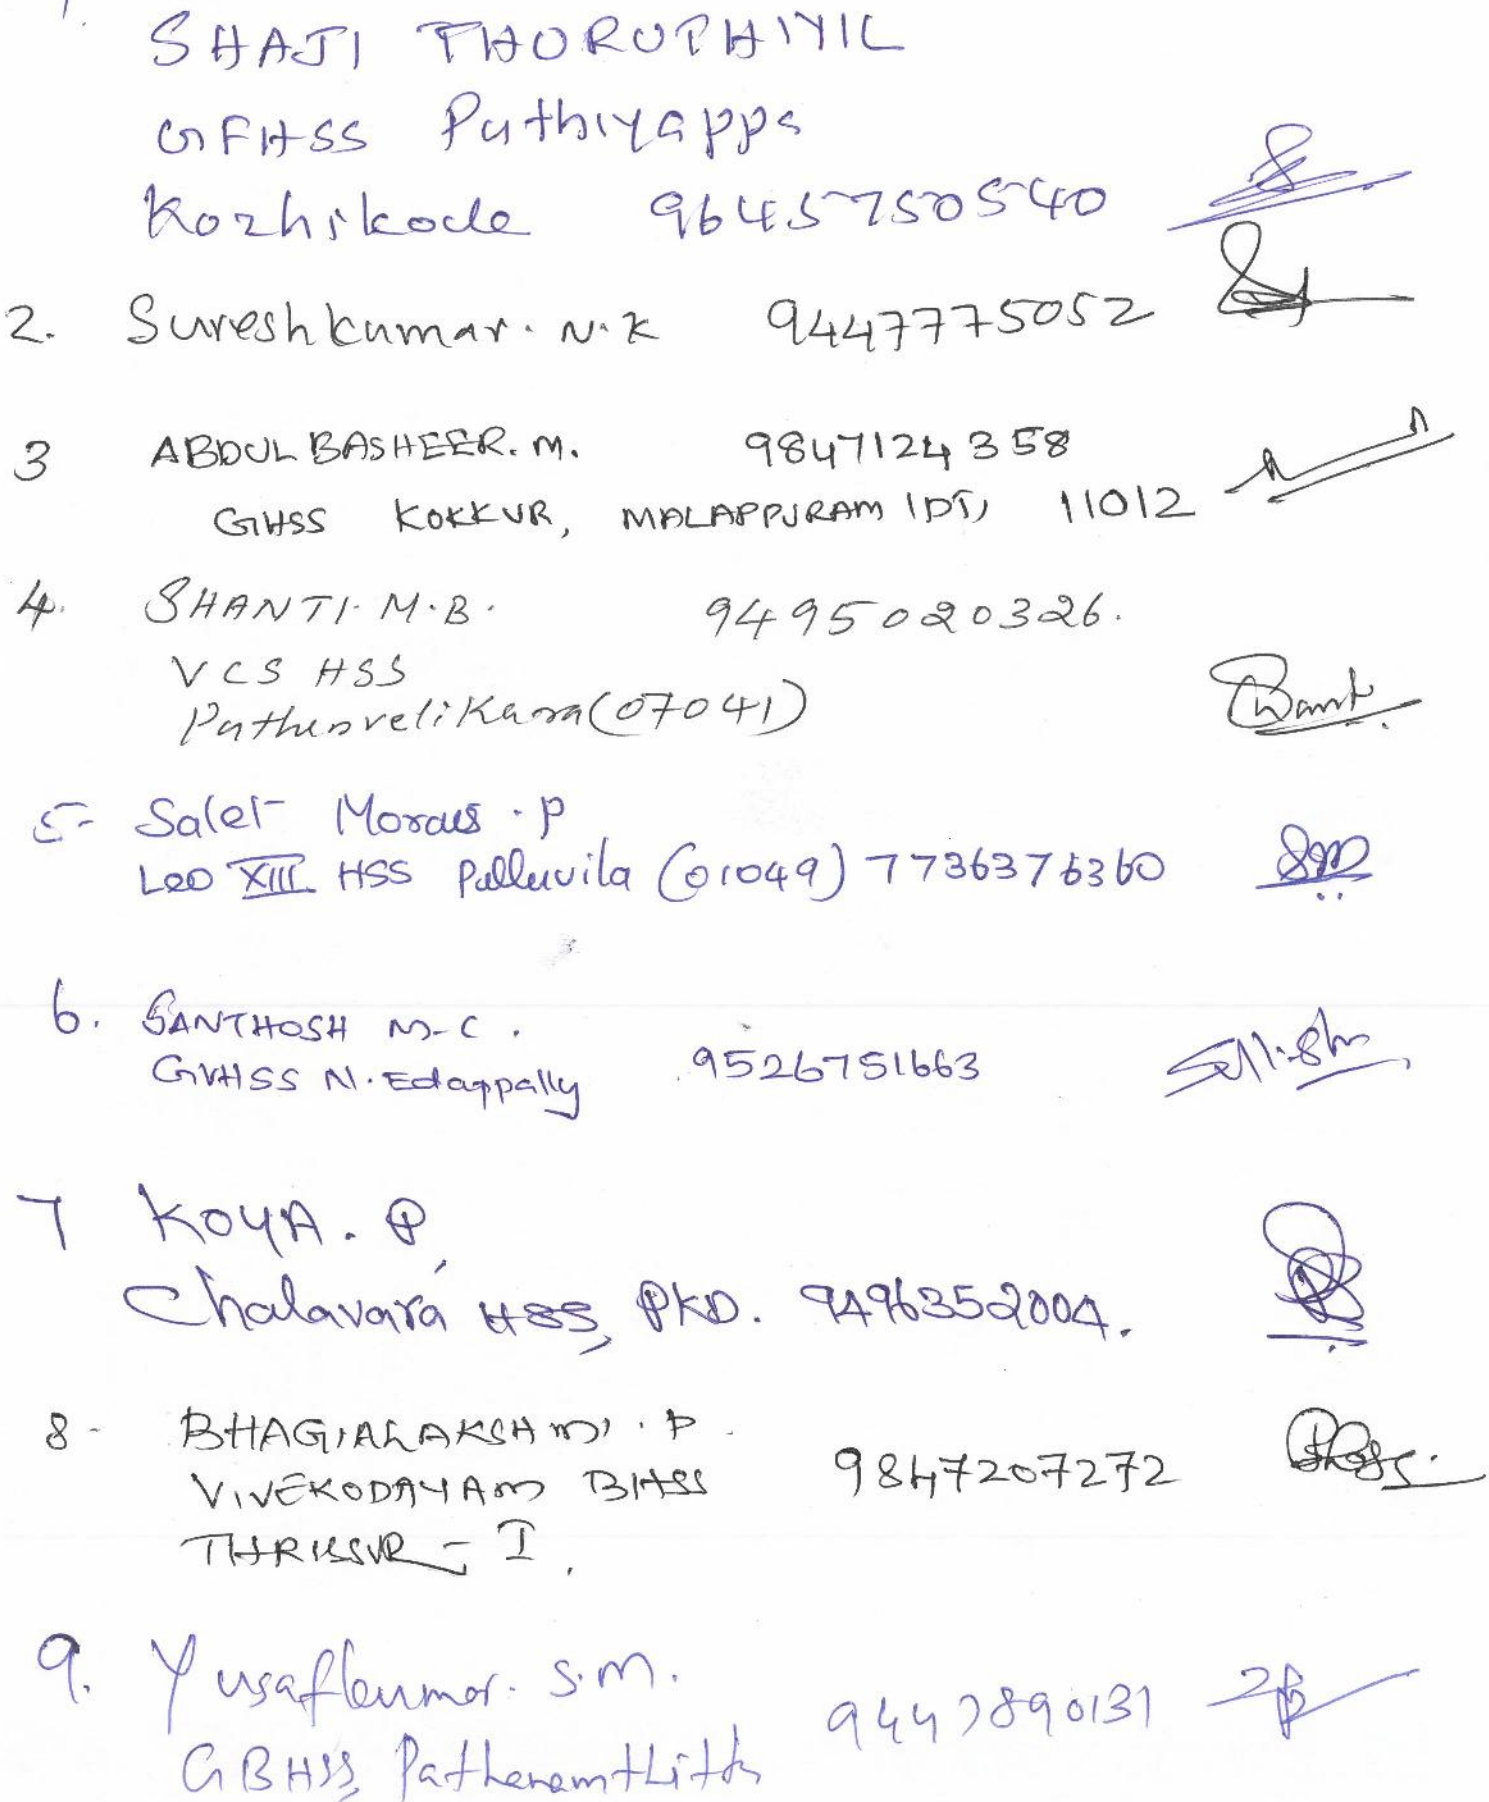 1. SHAJI THORUTHIYIL
GFHSS Puthiyappa
Kozhikode 9645750540
2. Sureshkumar. N.K 9447775052
3 ABDUL BASHEER. M. 9847124358
GHSS KOKKUR, MALAPPURAM (DT) 11012
4. SHANTI. M.B. 9495020326.
VCS HSS
Puthenvelikara (07041)
5- Salet Morais . P
Leo XIII HSS Pulluvila (01049) 7736376360
6. SANTHOSH M-C.
GVHSS N. Edappally 9526751663
7 KOYA. P,
Chalavara HSS, PKD. 9496352004.
8- BHAGIALAKSHMI. P.
VIVEKODAYAM BHSS 9847207272
THRISSUR - I.
9. Yusafkumar. S.M.
GBHSS, Pathanamthitta 9447890131